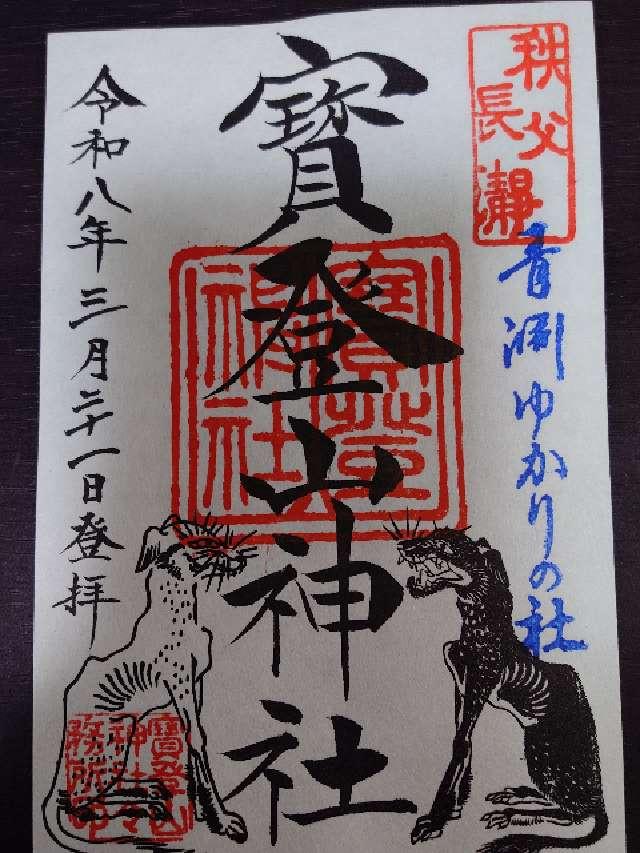 秩父
長瀞
青淵ゆかりの社
寶登山神社
寶登山神社
令和八年三月二十一日登拝
寶登山
神社々
務所印